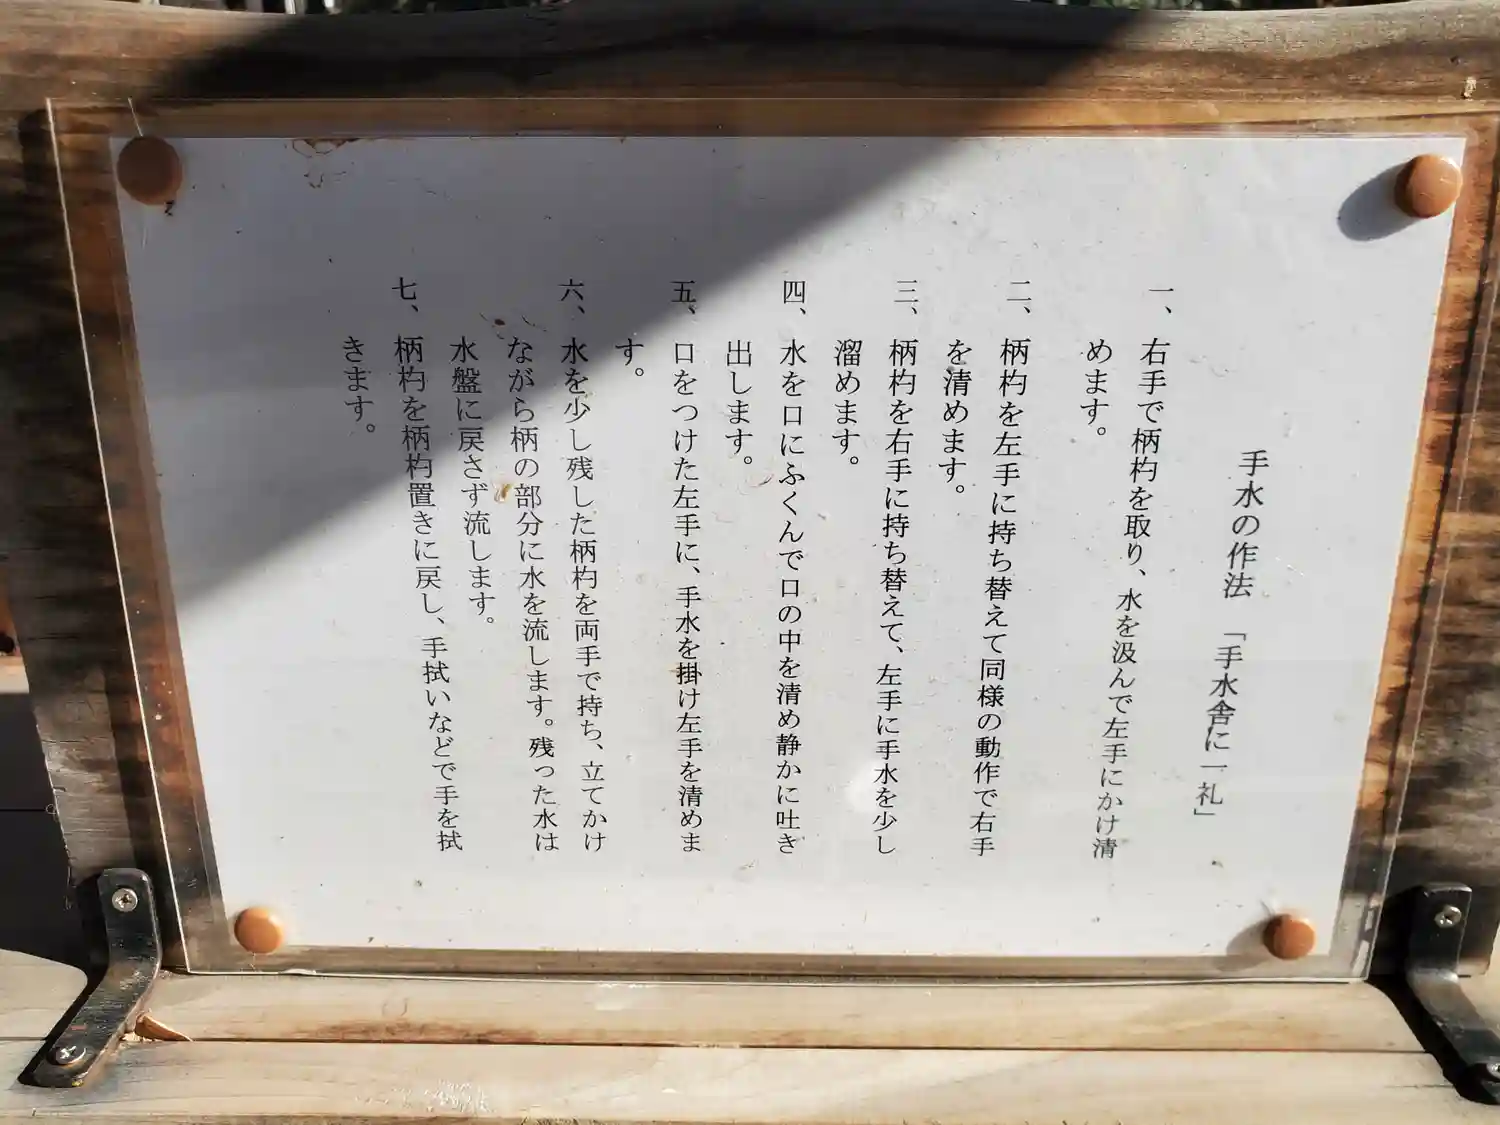 手水の作法　「手水舎に一礼」
一、右手で柄杓を取り、水を汲んで左手にかけ清
めます。
二、柄杓を左手に持ち替えて同様の動作で右手
を清めます。
三、柄杓を右手に持ち替えて、左手に手水を少し
溜めます。
四、水を口にふくんで口の中を清め静かに吐き
出します。
五、口をつけた左手に、手水を掛け左手を清めま
す。
六、水を少し残した柄杓を両手で持ち、立てかけ
ながら柄の部分に水を流します。残った水は
水盤に戻さず流します。
七、柄杓を柄杓置きに戻し、手拭いなどで手を拭
きます。